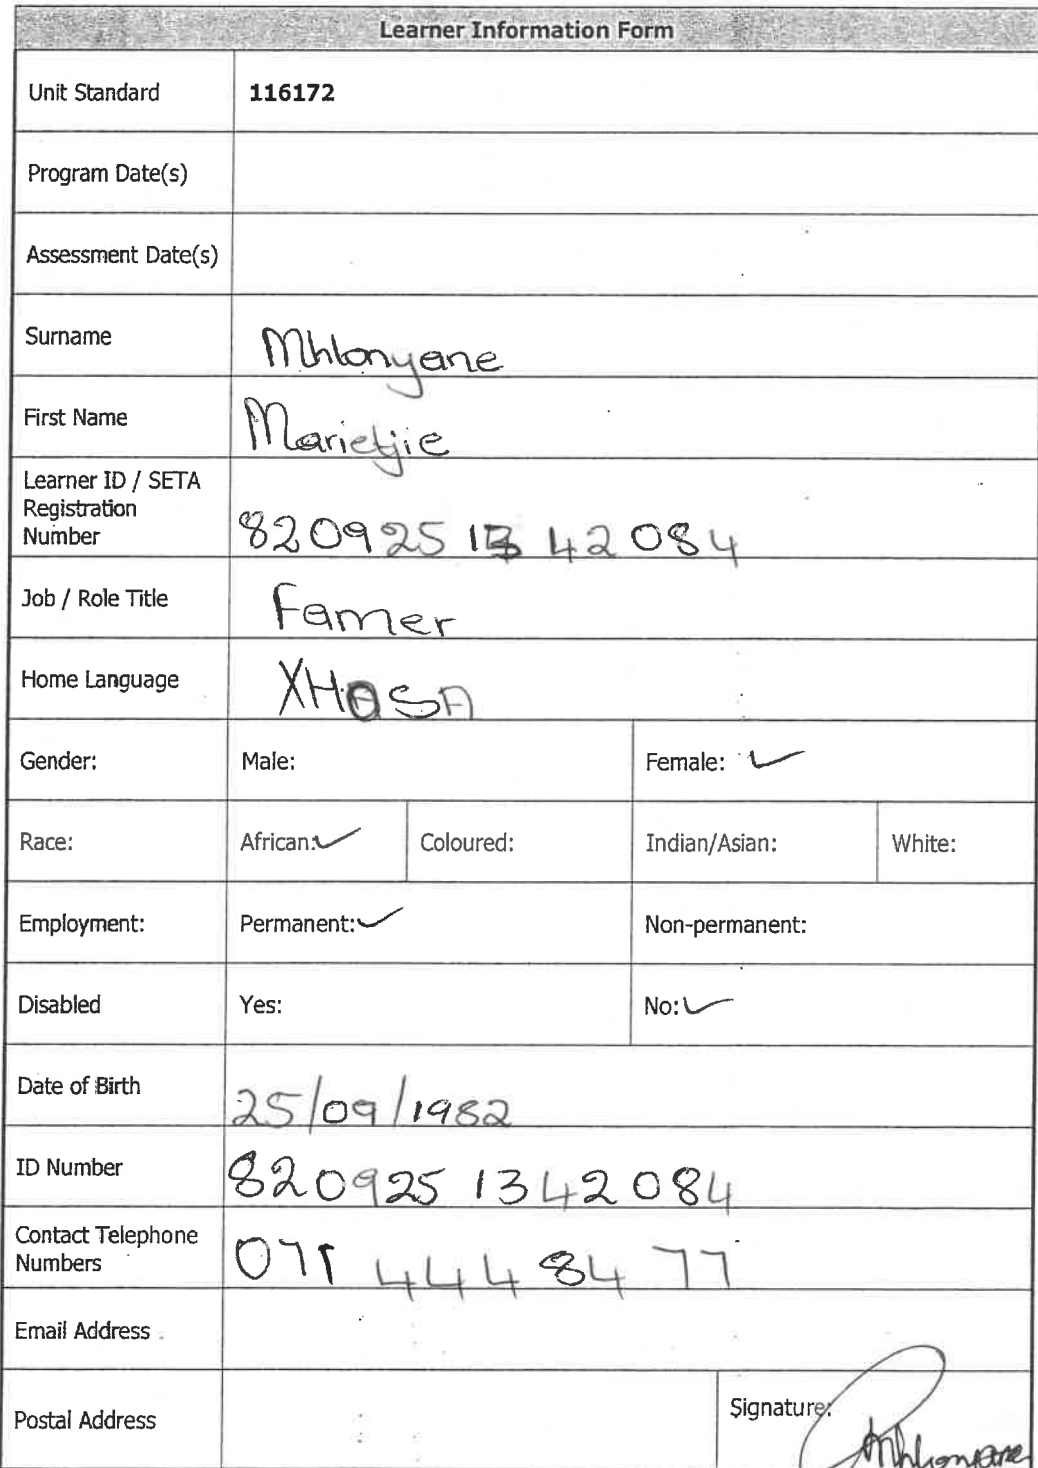 Learner Information Form
Unit Standard 116172
Program Date(s)
Assessment Date(s)
Surname Mhlonyane
First Name Marietjie
Learner ID / SETA
Registration
Number 820925 13 42 084
Job / Role Title Famer
Home Language XHOSA
Gender: Male: Female: ✓
Race: African: ✓ Coloured: Indian/Asian: White:
Employment: Permanent: ✓ Non-permanent:
Disabled Yes: No: ✓
Date of Birth 25/09/1982
ID Number 820925 1342 084
Contact Telephone
Numbers 071 444 84 77
Email Address
Postal Address Signature: Mhlonyane